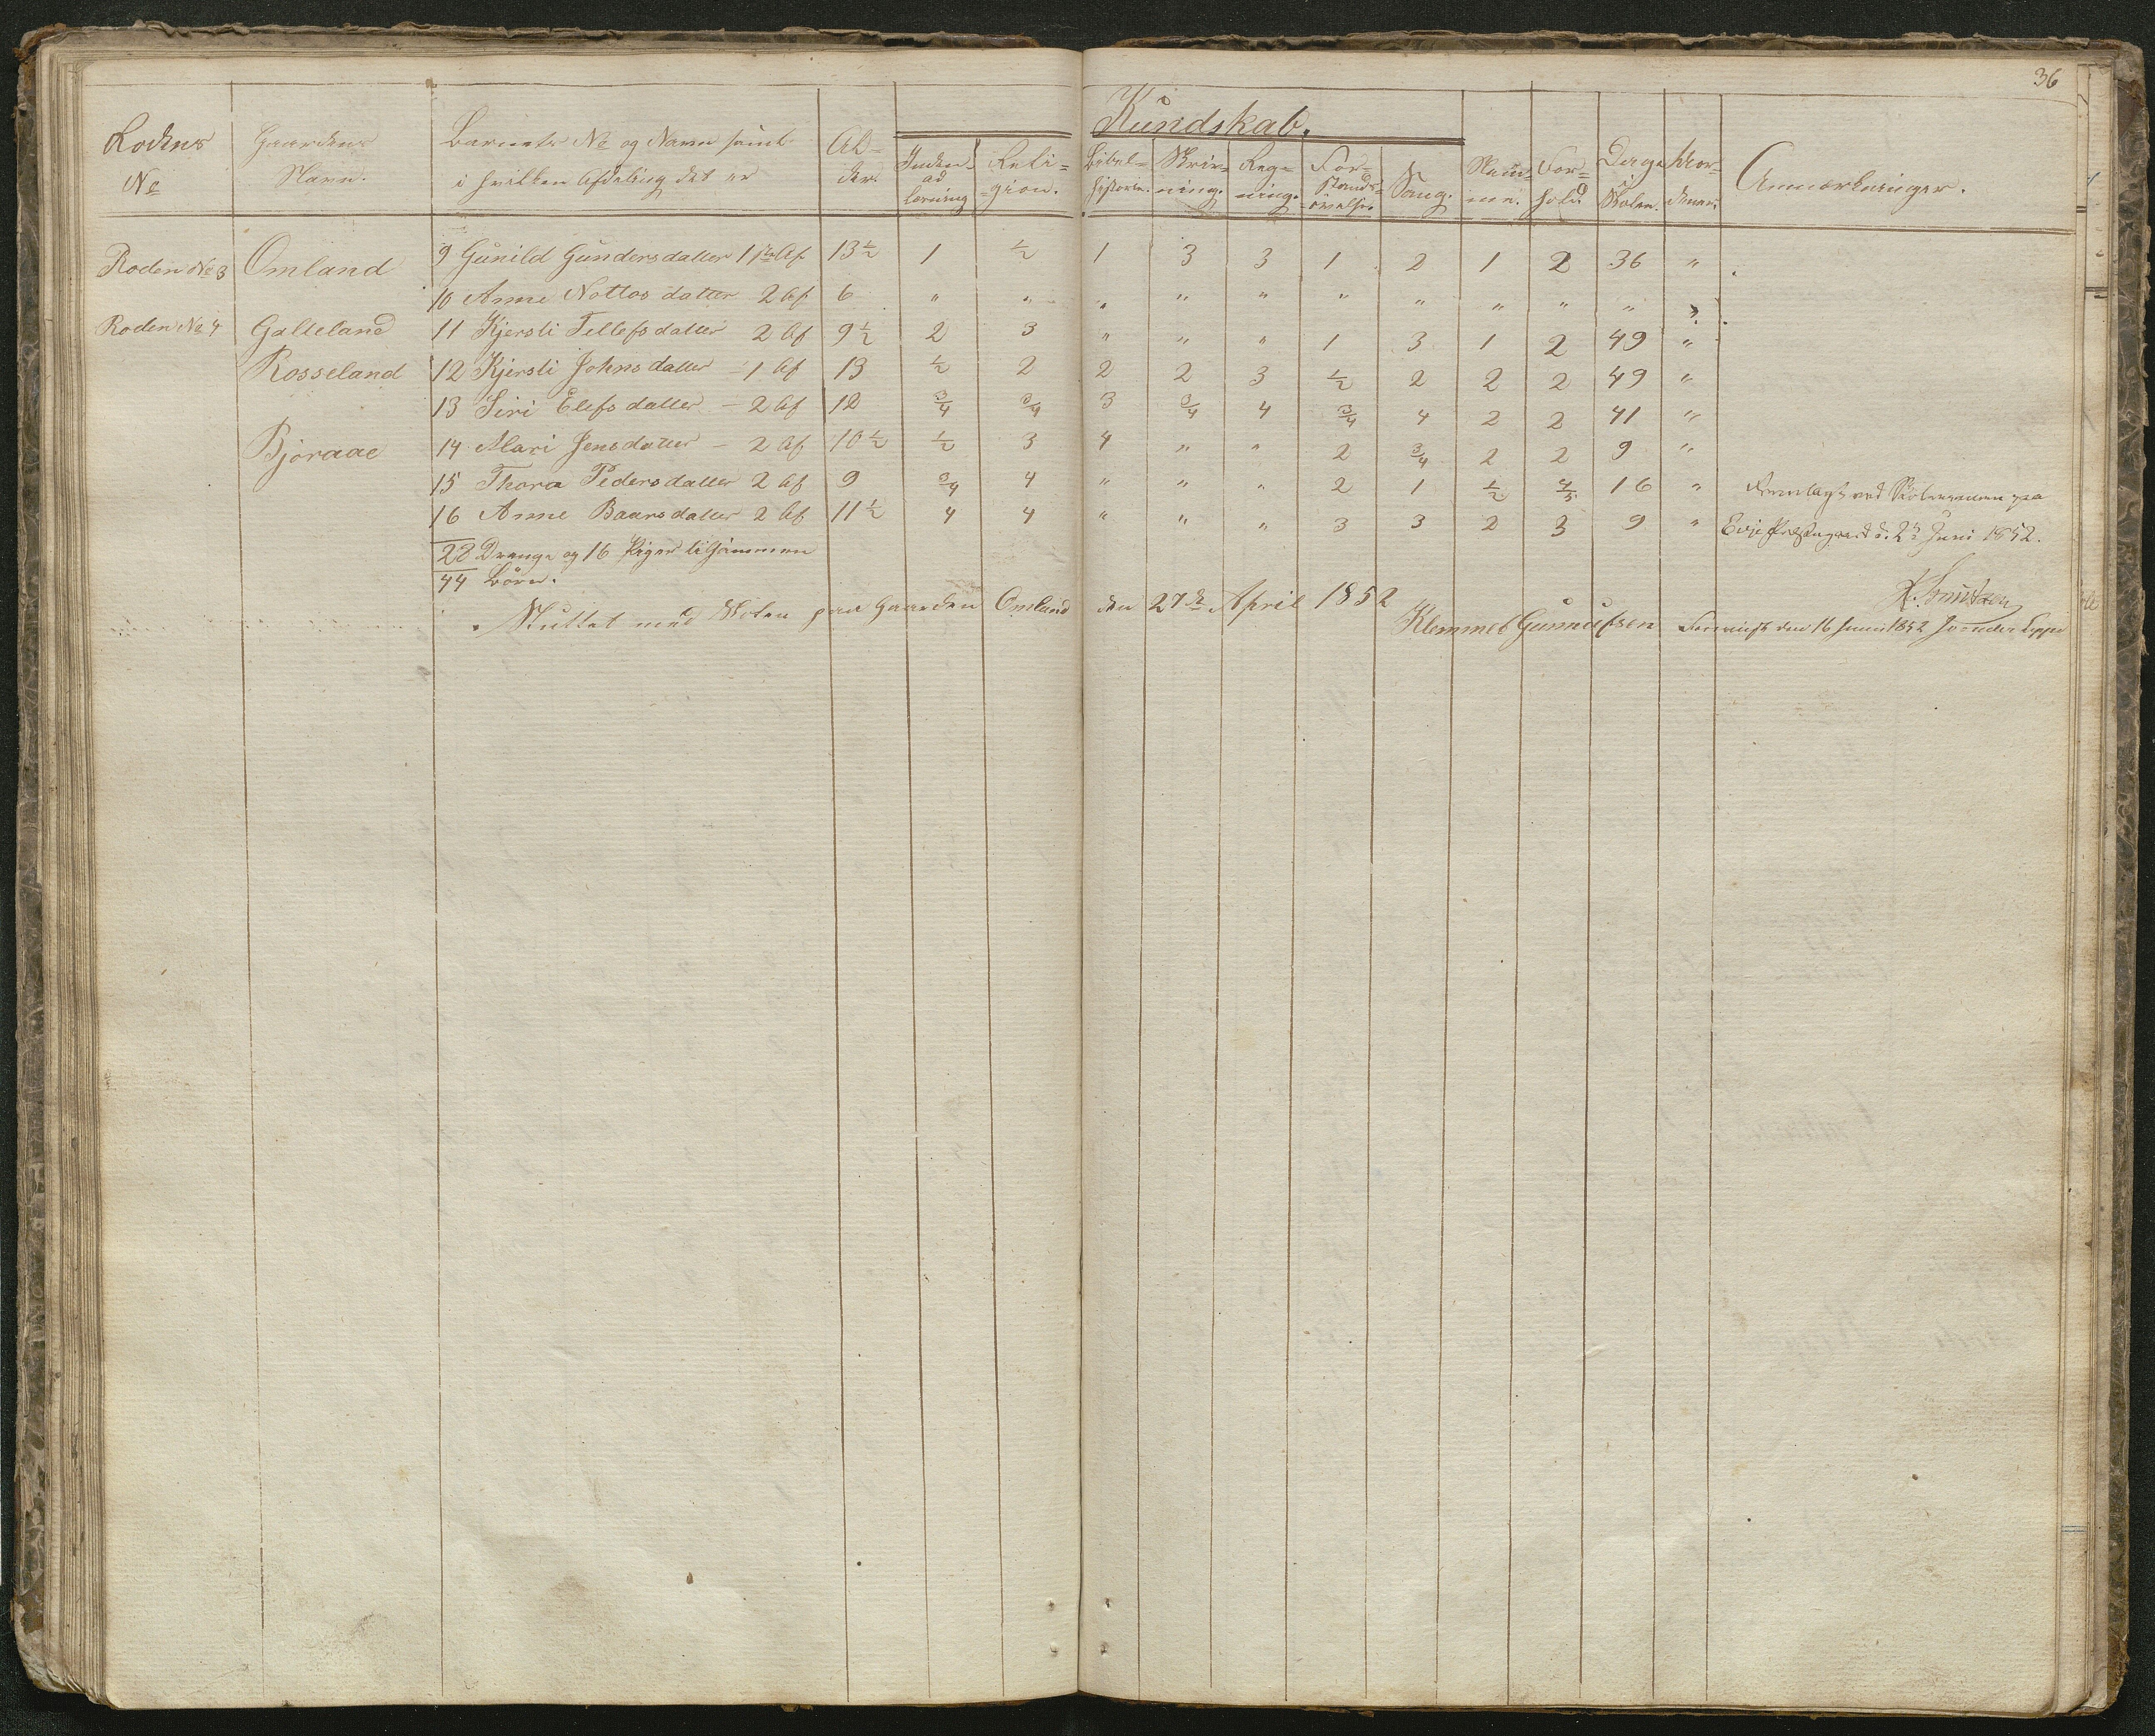 36
Kundskab.
Rodens No Gaardens Navn. Barnets No og Navn samt i hvilken Afdeling det er Alder. Indenadlæsning Religion. Bibelhistorie. Skrivning. Regning. Forstandsøvelse. Sang. Nemme. Forhold Dage i Skolen. Anmærkninger.
Roden No 3 Omland 9 Gunild Gundersdatter 1ste Af 13½ 1 ½ 1 3 3 1 2 1 2 36 "
10 Anne Nottos datter 2 Af 6 " " " " " " " " " " "
Roden No 4 Galteland 11 Kjersti Tellefsdatter 2 Af 9½ 2 3 " " " 1 3 1 2 49 "
Rosseland 12 Kjersti Johnsdatter - 1 Af 13 ½ 2 2 2 3 ½ 2 2 2 49 "
13 Siri Elefsdatter - 2 Af 12 3/4 3/4 3 3/4 4 3/4 4 2 2 41 "
Bjoraae 14 Mari Jensdatter - 2 Af 10½ ½ 3 4 " " 2 3/4 2 2 9 "
15 Thora Pedersdatter 2 Af 9 3/4 4 " " " 2 1 ½ 4/5 16 " Fremlagt ved Skolexamen paa
16 Anne Baarsdatter 2 Af 11½ 4 4 " " " 3 3 2 3 9 " Evje Præstegaard d. 2n Juni 1852.
28 Drenge og 16 Piger tilsammen
44 Børn.
Sluttet med Skolen paa Gaarden Omland den 27de April 1852
Klemmet Gunnufsen
den 16 Juni 1852